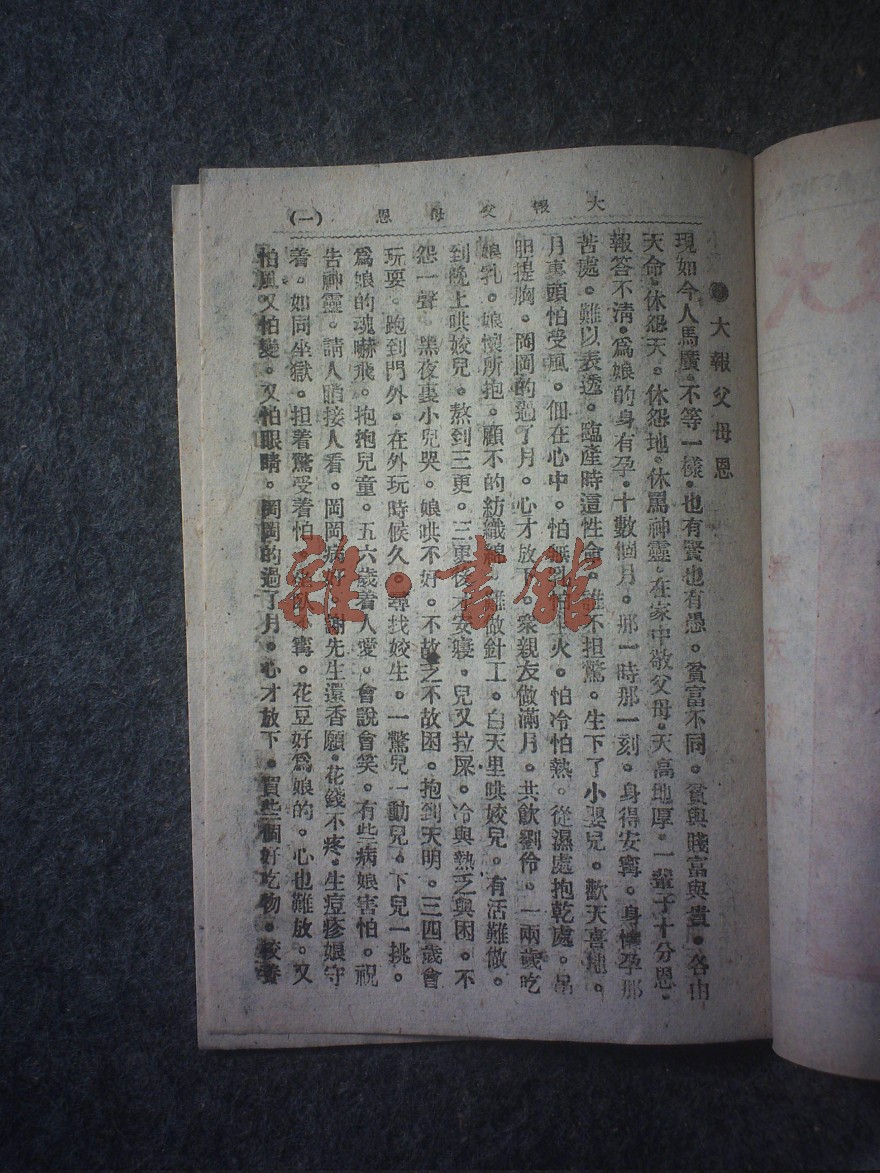 大報父母恩 (一)
大報父母恩
現如今人馬廣。不等一樣。也有賢也有愚。貧富不同。貧與賤富與貴。各由
天命。休怨天。休怨地。休罵神靈。在家中敬父母。天高地厚。一輩子十分恩。
報答不清。爲娘的身有孕。十數個月。那一時那一刻。身得安寗。身懷孕那
苦處。難以表透。臨產時這性命。誰不担驚。生下了小嬰兒。歡天喜地。
月裏頭怕受風。佃在心中。怕無乳 火。怕冷怕熱。從濕處抱乾處。吊
胆提胸。岡岡的過了月。心才放下。衆親友做滿月。共飲劉伶。一兩歲吃
娘乳。娘懷所抱。顧不的紡織綿。難做針工。白天里哄姣兒。有活難做。
到晚上哄姣兒。熬到三更。三更後不安寢。兒又拉屎。冷與熱乏與困。不
怨一聲 黑夜裏小兒哭。娘哄不好。不故乏不故困。抱到天明。三四歲會
玩耍。跑到門外。在外玩時候久。尋找姣生。一驚兒一動兒。下兒一挑。
爲娘的魂嚇飛。抱抱兒童。五六歲着人愛。會說會笑。有些病娘害怕。祝
告神靈。請人瞄接人看。岡岡病好。謝先生還香願。花錢不疼。生痘疹娘守
着。如同坐獄。担着驚受着怕。坐臥不寗。花豆好爲娘的。心也難放。又
怕風又怕變。又怕眼睛。岡岡的過了月。心才放下。買些個好吃物。姣養
雜·書館
大
天